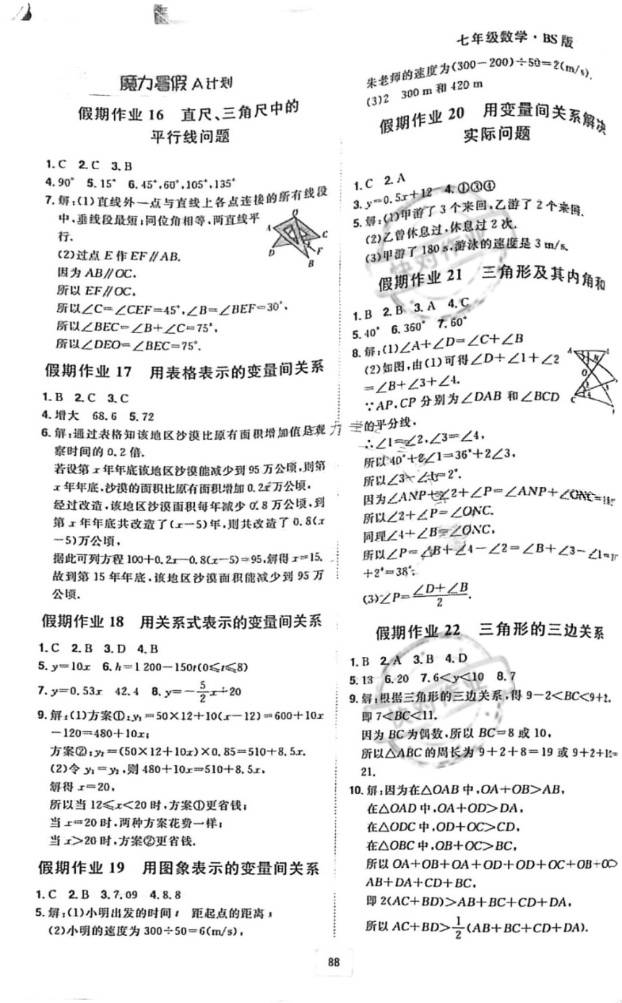 七年级数学·BS版
魔力暑假A计划
假期作业16 直尺、三角尺中的
平行线问题
1.C 2.C 3.B
4.90° 5.15° 6.45°,60°,105°,135°
7.解:(1)直线外一点与直线上各点连接的所有线段
中,垂线段最短;同位角相等,两直线平
行.
(2)过点E作EF∥AB.
因为AB∥OC,
所以EF∥OC,
所以∠C=∠CEF=45°,∠B=∠BEF=30°,
所以∠BEC=∠B+∠C=75°,
所以∠DEO=∠BEC=75°.
A
O
E
C
D
B
F
假期作业17 用表格表示的变量间关系
1.B 2.C 3.C
4.增大 68.6 5.72
6.解:通过表格知该地区沙漠比原有面积增加值是观
察时间的0.2倍.
若设第x年年底该地区沙漠能减少到95万公顷,则第
x年年底,沙漠的面积比原有面积增加0.2x万公顷,
经过改造,该地区沙漠面积每年减少0.8万公顷,到
第x年年底共改造了(x-5)年,则共改造了0.8(x
-5)万公顷,
据此可列方程100+0.2x-0.8(x-5)=95,解得x=15.
故到第15年年底,该地区沙漠面积能减少到95万
公顷.
假期作业18 用关系式表示的变量间关系
1.C 2.B 3.D 4.B
5.y=10x 6.h=1 200-150t(0≤t≤8)
7.y=0.53x 42.4 8.y=-5/2x+20
9.解:(1)方案①:y₁=50×12+10(x-12)=600+10x
-120=480+10x;
方案②:y₂=(50×12+10x)×0.85=510+8.5x.
(2)令y₁=y₂,则480+10x=510+8.5x,
解得x=20,
所以当12≤x<20时,方案①更省钱;
当x=20时,两种方案花费一样;
当x>20时,方案②更省钱.
假期作业19 用图象表示的变量间关系
1.C 2.B 3.7.09 4.8.8
5.解:(1)小明出发的时间t 距起点的距离s
(2)小明的速度为300÷50=6(m/s),
朱老师的速度为(300-200)÷50=2(m/s).
(3)2 300 m和420 m
假期作业20 用变量间关系解决
实际问题
1.C 2.A
3.y=0.5x+12 4.①③④
5.解:(1)甲游了3个来回,乙游了2个来回.
(2)乙曾休息过,休息过2次.
(3)甲游了180 s,游泳的速度是3 m/s.
假期作业21 三角形及其内角和
1.B 2.B 3.A 4.C
5.40° 6.360° 7.60°
8.解:(1)∠A+∠D=∠C+∠B
(2)如图,由(1)可得∠D+∠1+∠2
=∠B+∠3+∠4.
∵AP,CP分别为∠DAB和∠BCD
的平分线,
∴∠1=∠2,∠3=∠4,
所以40°+2∠1=36°+2∠3,
所以∠3-∠1=2°.
因为∠ANP+∠2+∠P=∠ANP+∠ONC=
所以∠2+∠P=∠ONC.
同理∠4+∠B=∠ONC,
所以∠P=∠B+∠4-∠2=∠B+∠3-∠1=
+2°=38°;
(3)∠P=(∠D+∠B)/2.
假期作业22 三角形的三边关系
1.B 2.A 3.B 4.D
5.13 6.20 7.6<y<10 8.7
9.解:根据三角形的三边关系,得9-2<BC<9+2,
即7<BC<11.
因为BC为偶数,所以BC=8或10,
所以△ABC的周长为9+2+8=19或9+2+
21.
10.解:因为在△OAB中,OA+OB>AB,
在△OAD中,OA+OD>DA,
在△ODC中,OD+OC>CD,
在△OBC中,OB+OC>BC,
所以OA+OB+OA+OD+OD+OC+OB+OC>
AB+DA+CD+BC,
即2(AC+BD)>AB+BC+CD+DA,
所以AC+BD>1/2(AB+BC+CD+DA).
88